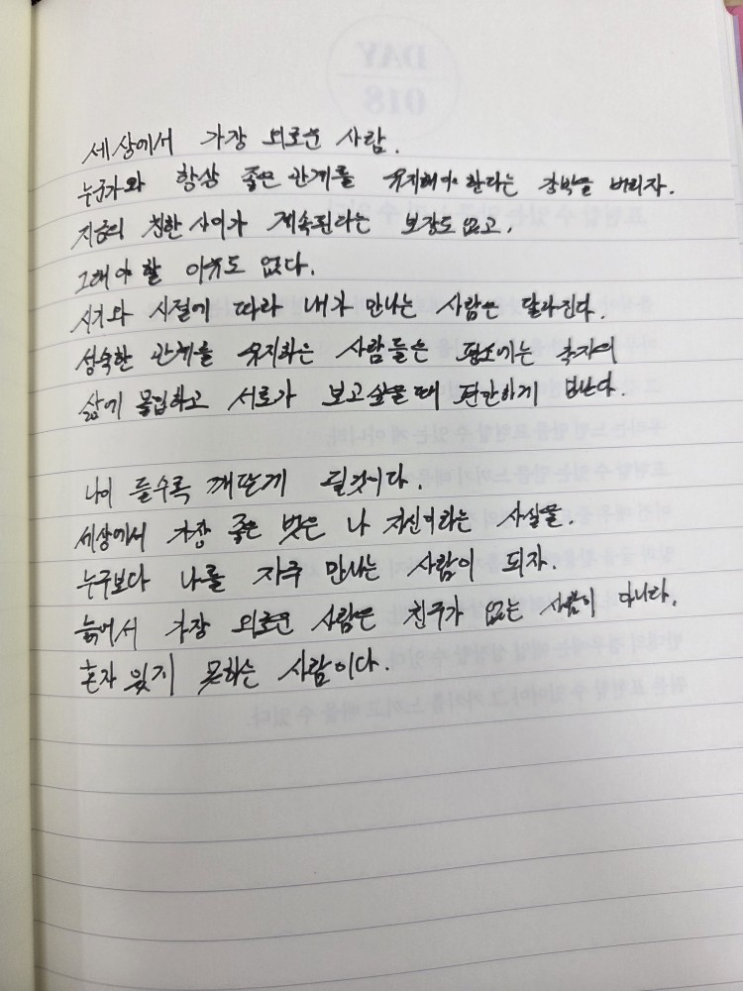 세상에서 가장 외로운 사람.
누군가와 항상 좋은 관계를 유지해야 한다는 강박을 버리자.
지금의 친한 사이가 계속된다는 보장도 없고,
그래야 할 이유도 없다.
시기와 시절에 따라 내가 만나는 사람은 달라진다.
성숙한 관계를 유지하는 사람들은 평소에는 각자의
삶에 몰입하고 서로가 보고싶을 때 편안하게 만난다.
나이 들수록 깨닫게 될것이다.
세상에서 가장 좋은 벗은 나 자신이라는 사실을.
누구보다 나를 자주 만나는 사람이 되자.
늙어서 가장 외로운 사람은 친구가 없는 사람이 아니다.
혼자 있지 못하는 사람이다.
DAY
018